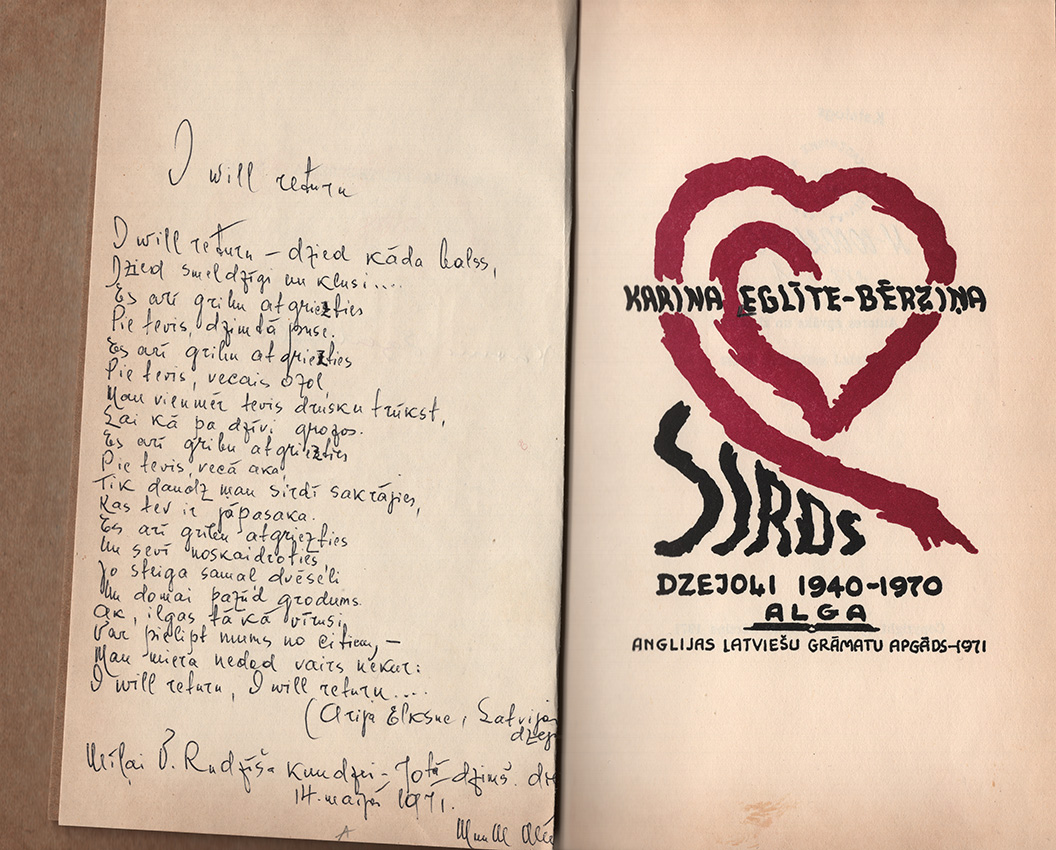 I will return
I will return – dzied kāda balss,
Dzied smeldzīgi un klusi....
Es arī gribu atgriezties
Pie tevis, dzimtā puse.
Es arī gribu atgriezties
Pie tevis, vecais ozol,
Man vienmēr tevis drusku trūkst,
Lai kā pa dzīvi grozos.
Es arī gribu atgriezties
Pie tevis, vecā aka,
Tik daudz man sirdī sakrājies,
Kas tev ir jāpasaka.
Es arī gribu atgriezties
Un sevī noskaidroties
Jo steiga samaļ dvēseli
Un domai pazūd grodums.
Ak, ilgas tā kā vīrusi
Var pielipt mums no citiem, –
Man miera nedod vairs nekur:
I will return, I will return....
(Ārija Elksne, Latvijas
Mīļai Rudzīša kundzei –
14. maijā 1971.
KARINA EGLĪTE-BĒRZIŅA
SIRDS
DZEJOĻI 1940-1970
ALGA
ANGLIJAS LATVIEŠU GRĀMATU APGĀDS-1971